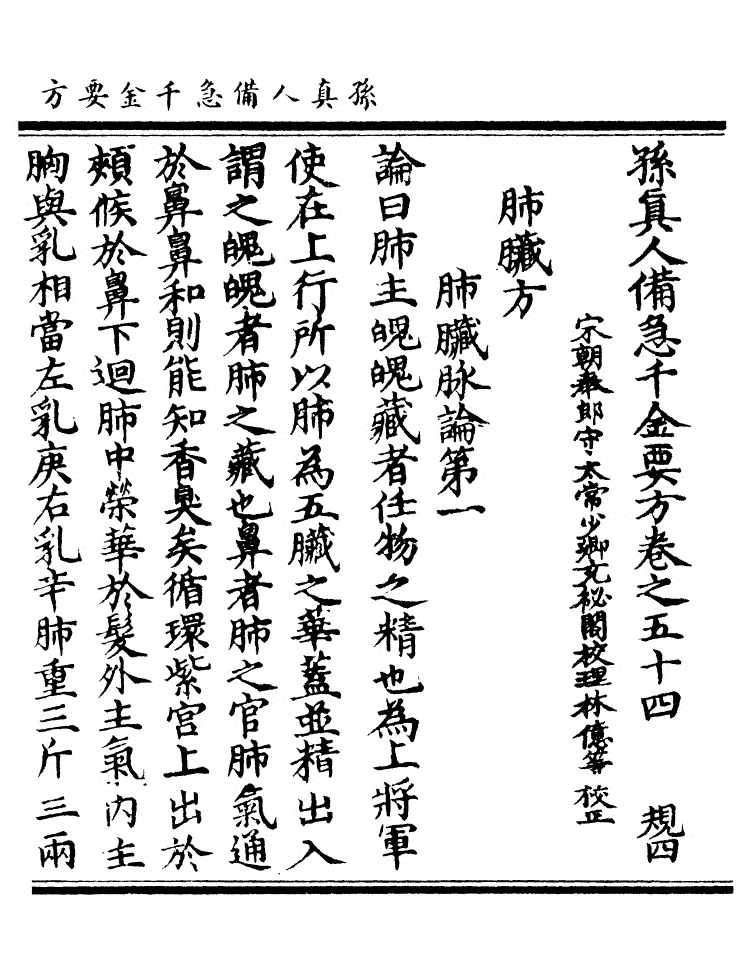 孫真人備急千金要方
孫真人備急千金要方卷之五十四 規四
宋朝奉郎守太常少卿充秘閣校理林億等校正
肺臟方
肺臟脉論第一
論曰肺主魄魄藏者任物之精也為上將軍
使在上行所以肺為五臟之華蓋並精出入
謂之魄魄者肺之藏也鼻者肺之官肺氣通
於鼻鼻和則能知香臭矣循環紫宮上出於
頰候於鼻下迴肺中榮華於髮外主氣內主
胸與乳相當左乳庚右乳辛肺重三斤三兩